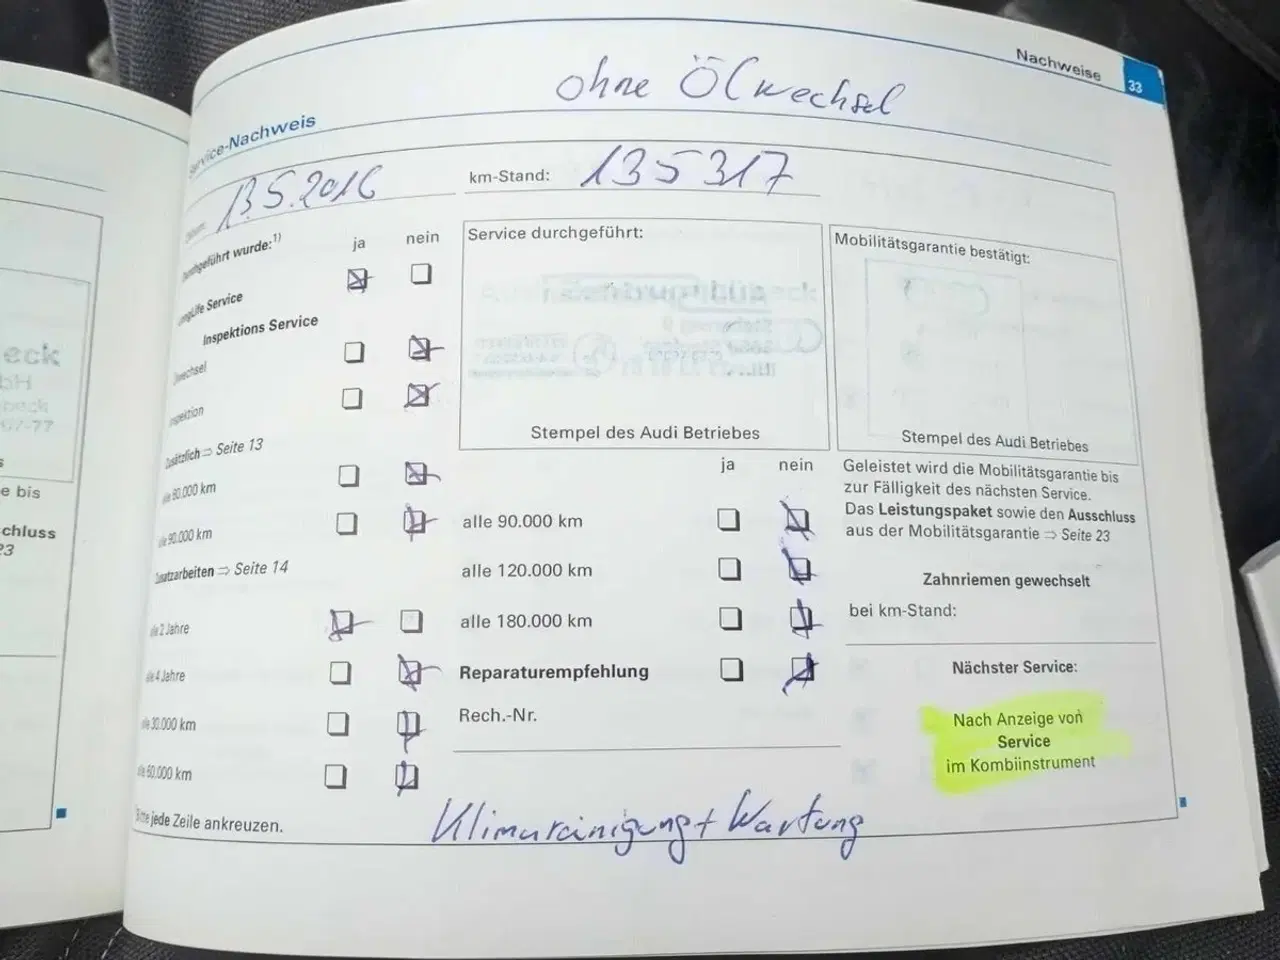 eck
bH
beck
07-77
e bis
chluss
23
Nachweise 33
ohne Ölwechsel
Service-Nachweis
Datum: 13.5.2016
km-Stand: 135317
Durchgeführt wurde:1)
ja nein
LongLife Service
Inspektions Service
Ölwechsel
Inspektion
Zusätzlich ⇒ Seite 13
alle 90.000 km
Zusatzarbeiten ⇒ Seite 14
alle 2 Jahre
alle 4 Jahre
alle 30.000 km
alle 60.000 km
Bitte jede Zeile ankreuzen.
Service durchgeführt:
Stempel des Audi Betriebes
ja nein
alle 90.000 km
alle 120.000 km
alle 180.000 km
Reparaturempfehlung
Rech.-Nr.
Mobilitätsgarantie bestätigt:
Stempel des Audi Betriebes
Geleistet wird die Mobilitätsgarantie bis
zur Fälligkeit des nächsten Service.
Das Leistungspaket sowie den Ausschluss
aus der Mobilitätsgarantie ⇒ Seite 23
Zahnriemen gewechselt
bei km-Stand:
Nächster Service:
Nach Anzeige von
Service
im Kombiinstrument
Klimareinigung + Wartung